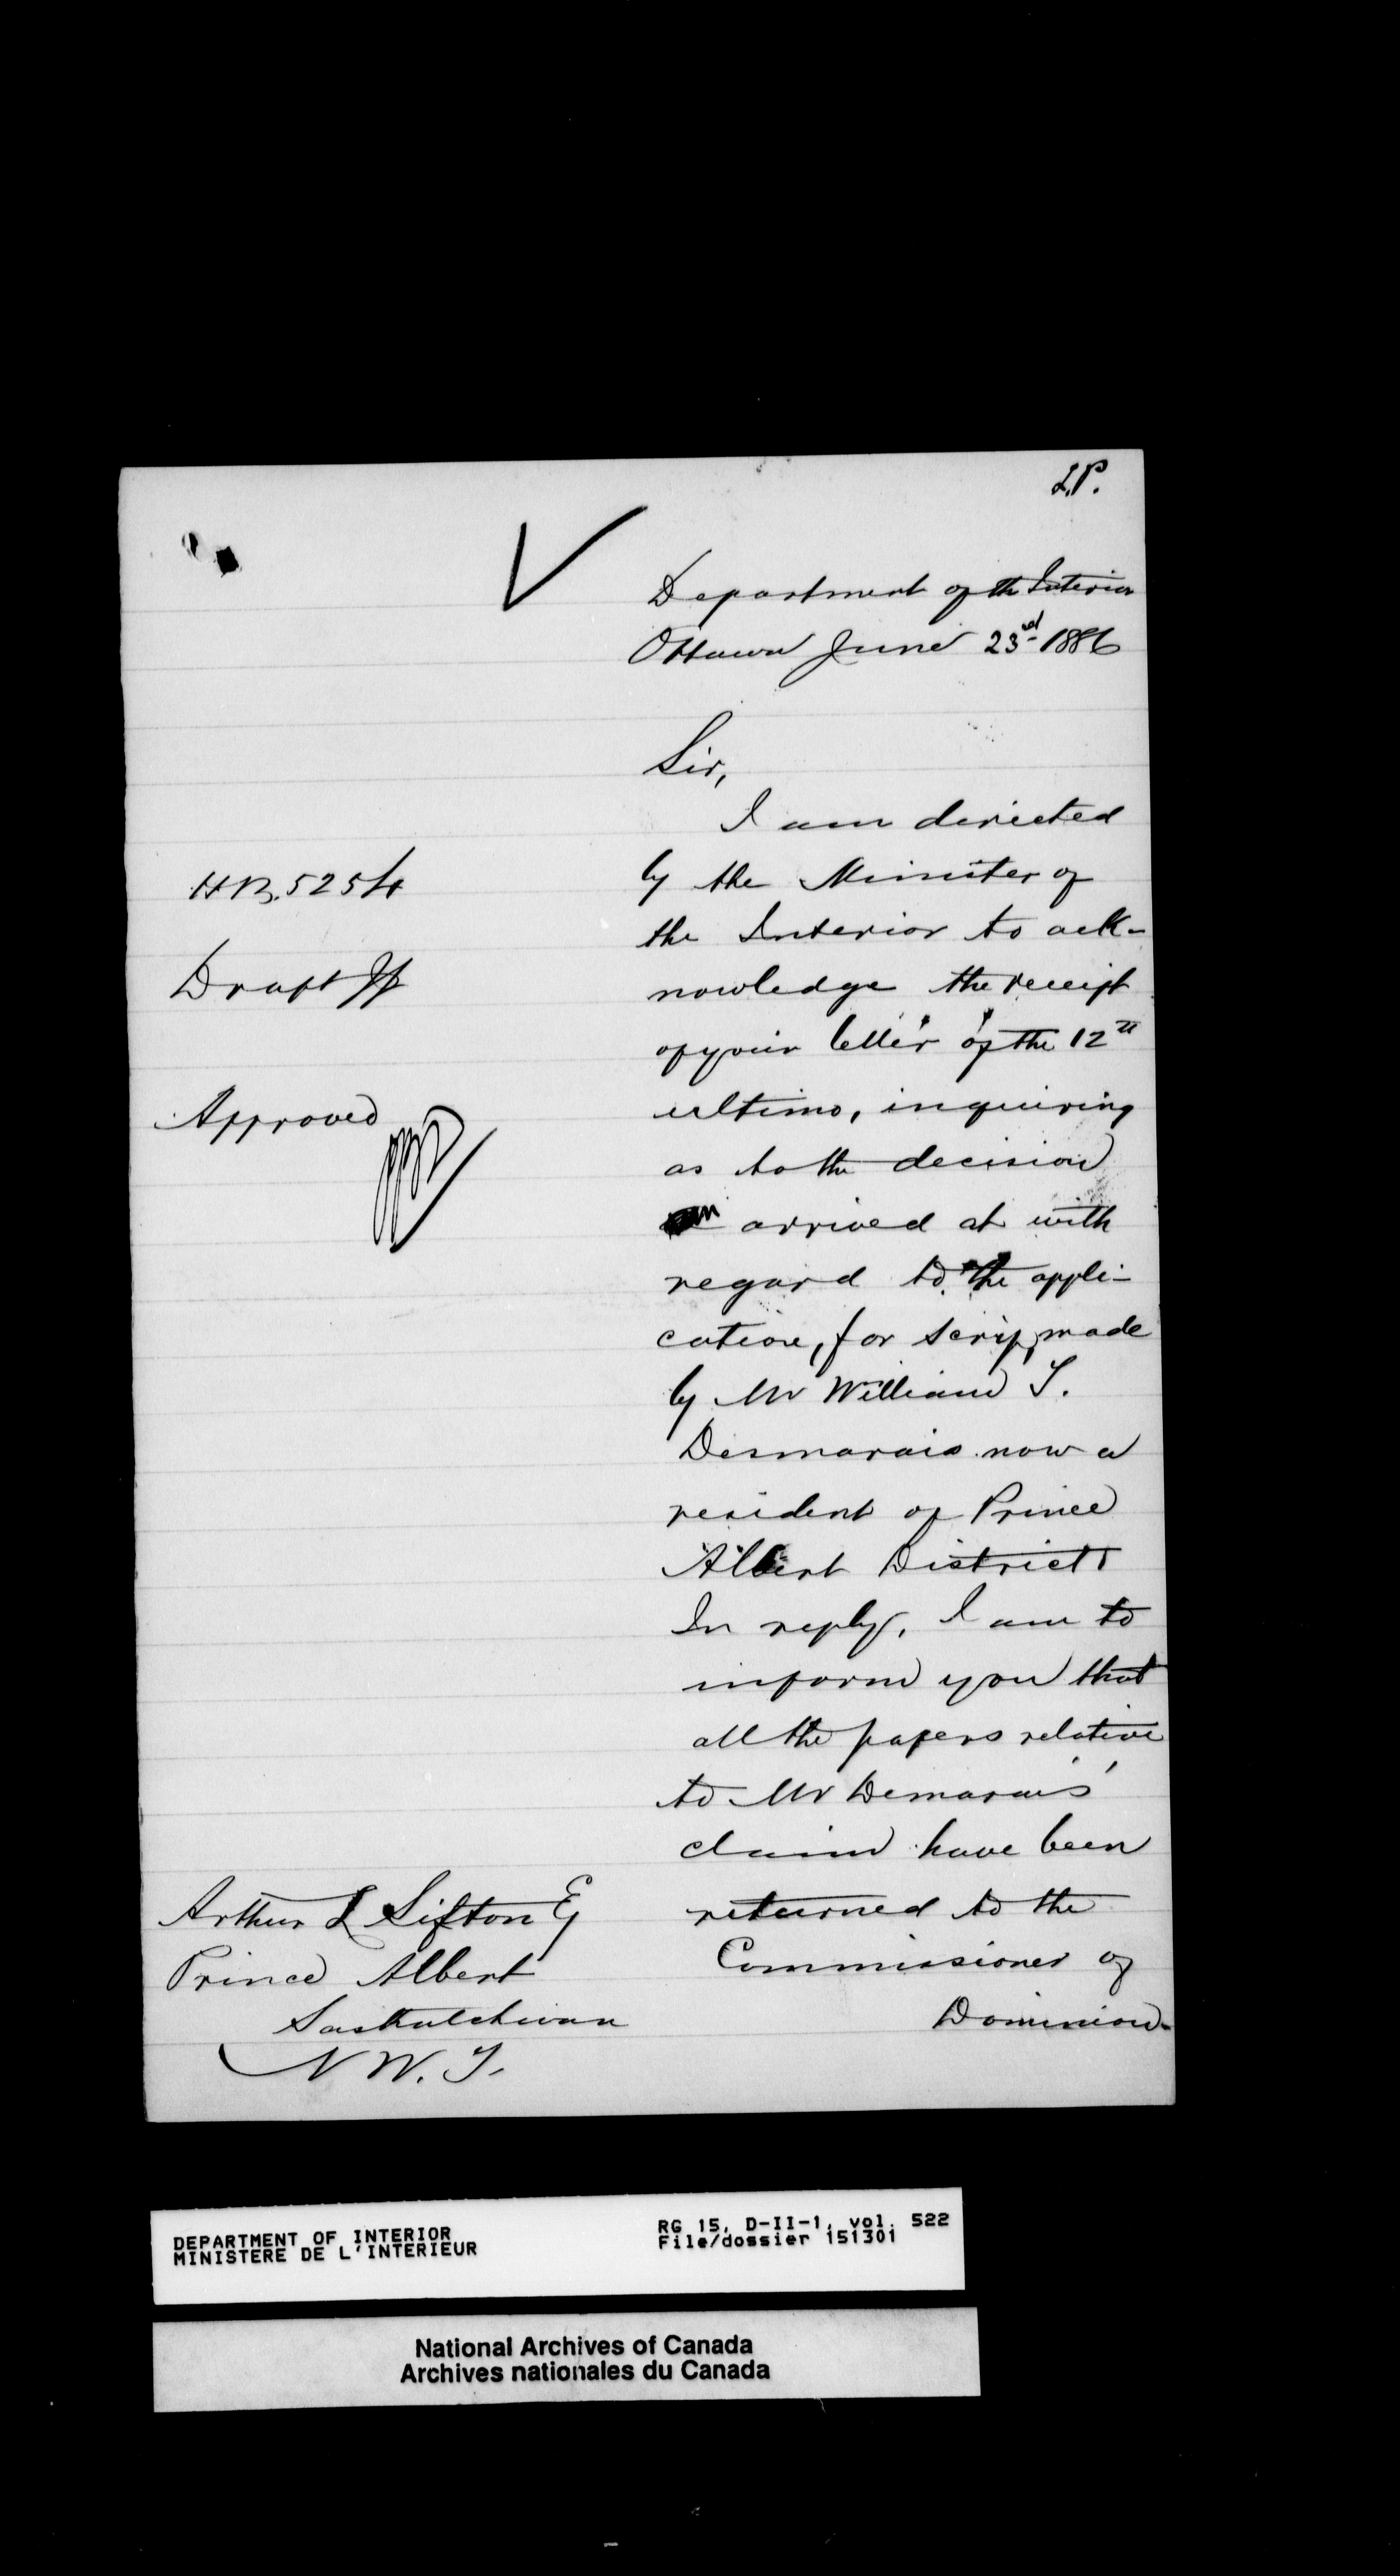 L.P.
Department of the Interior
Ottawa June 23rd 1886
Sir,
I am directed
by the Minister of
the Interior to ack-
nowledge the receipt
of your letter of the 12th
ultimo, inquiring
as to the decision
arrived at with
regard to the appli-
cation, for scrip, made
by Mr William T.
Desmarais now a
resident of Prince
Albert District
In reply, I am to
inform you that
all the papers relative
to Mr Demarais'
claim have been
returned to the
Commissioner of
Dominion-
HB. 5254
Draft
Approved
Arthur L Sifton Eq
Prince Albert
Saskatchewan
N W. T.
DEPARTMENT OF INTERIOR
MINISTERE DE L'INTERIEUR
RG 15, D-II-1, vol. 522
File/dossier 151301
National Archives of Canada
Archives nationales du Canada